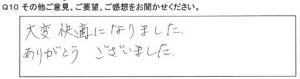 Q10 その他ご意見、ご要望、ご感想をお聞かせください。
大変快適になりました。
ありがとう ございました。